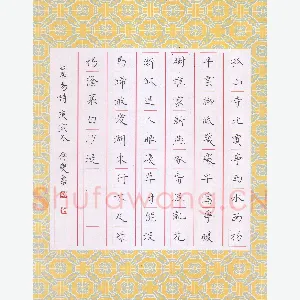 孤山寺北賈亭西水面初
平雲腳低幾處早鶯爭暖
樹誰家新燕啄春泥亂花
漸欲迷人眼淺草才能沒
馬蹄最愛湖東行不足綠
楊蔭裏白沙堤
Shufawang.CN